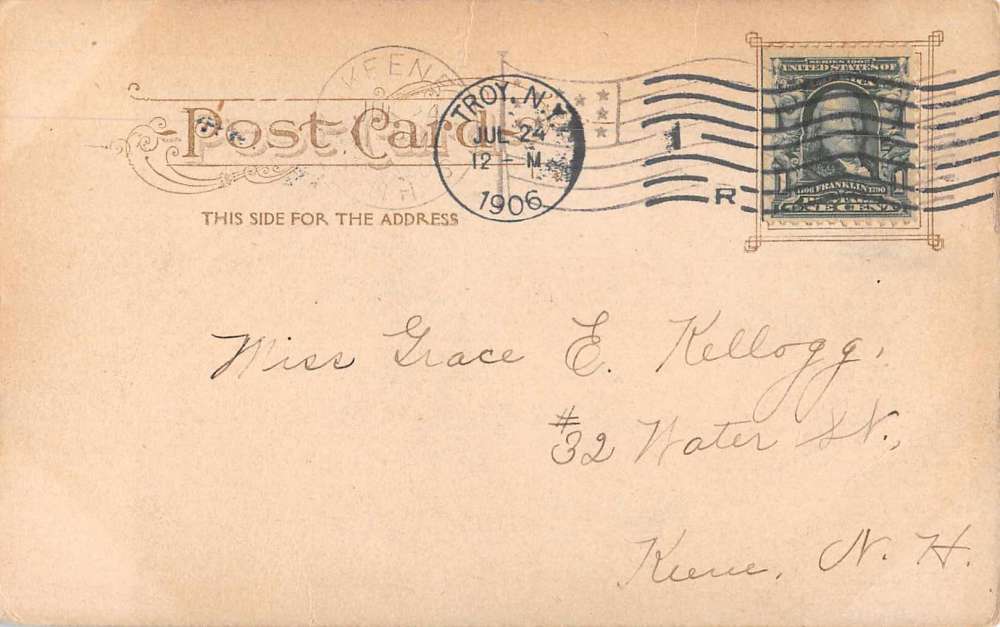 KEENE
N. H.
Post Card
THIS SIDE FOR THE ADDRESS
TROY, N.Y.
JUL 24
12 - M
1906
1
R
SERIES 1902
UNITED STATES OF
FRANKLIN
ONE CENT
Miss Grace E. Kellogg,
#32 Water St.,
Keene, N. H.